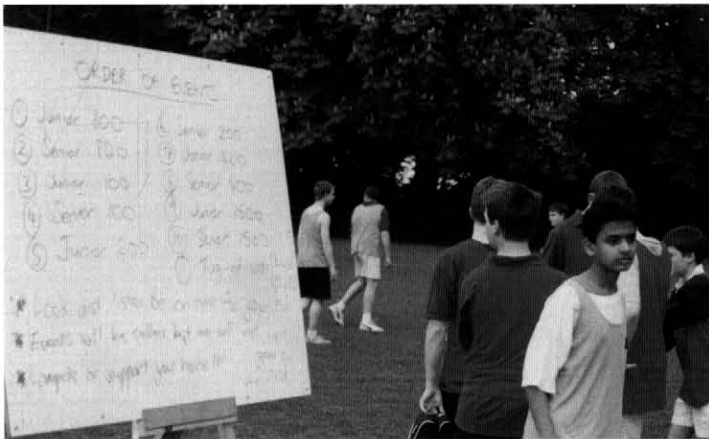 ORDER OF EVENTS
① Junior 800
② Senior 800
③ Junior 100
④ Senior 100
⑤ Junior 200
⑥ Senior 200
⑦ Junior 400
⑧ Senior 400
⑨ Junior 1500
⑩ Senior 1500
⑪ Tug-of-War
* Look and listen Be on time for your
* Events will be called but we will not
* Compete or support your house